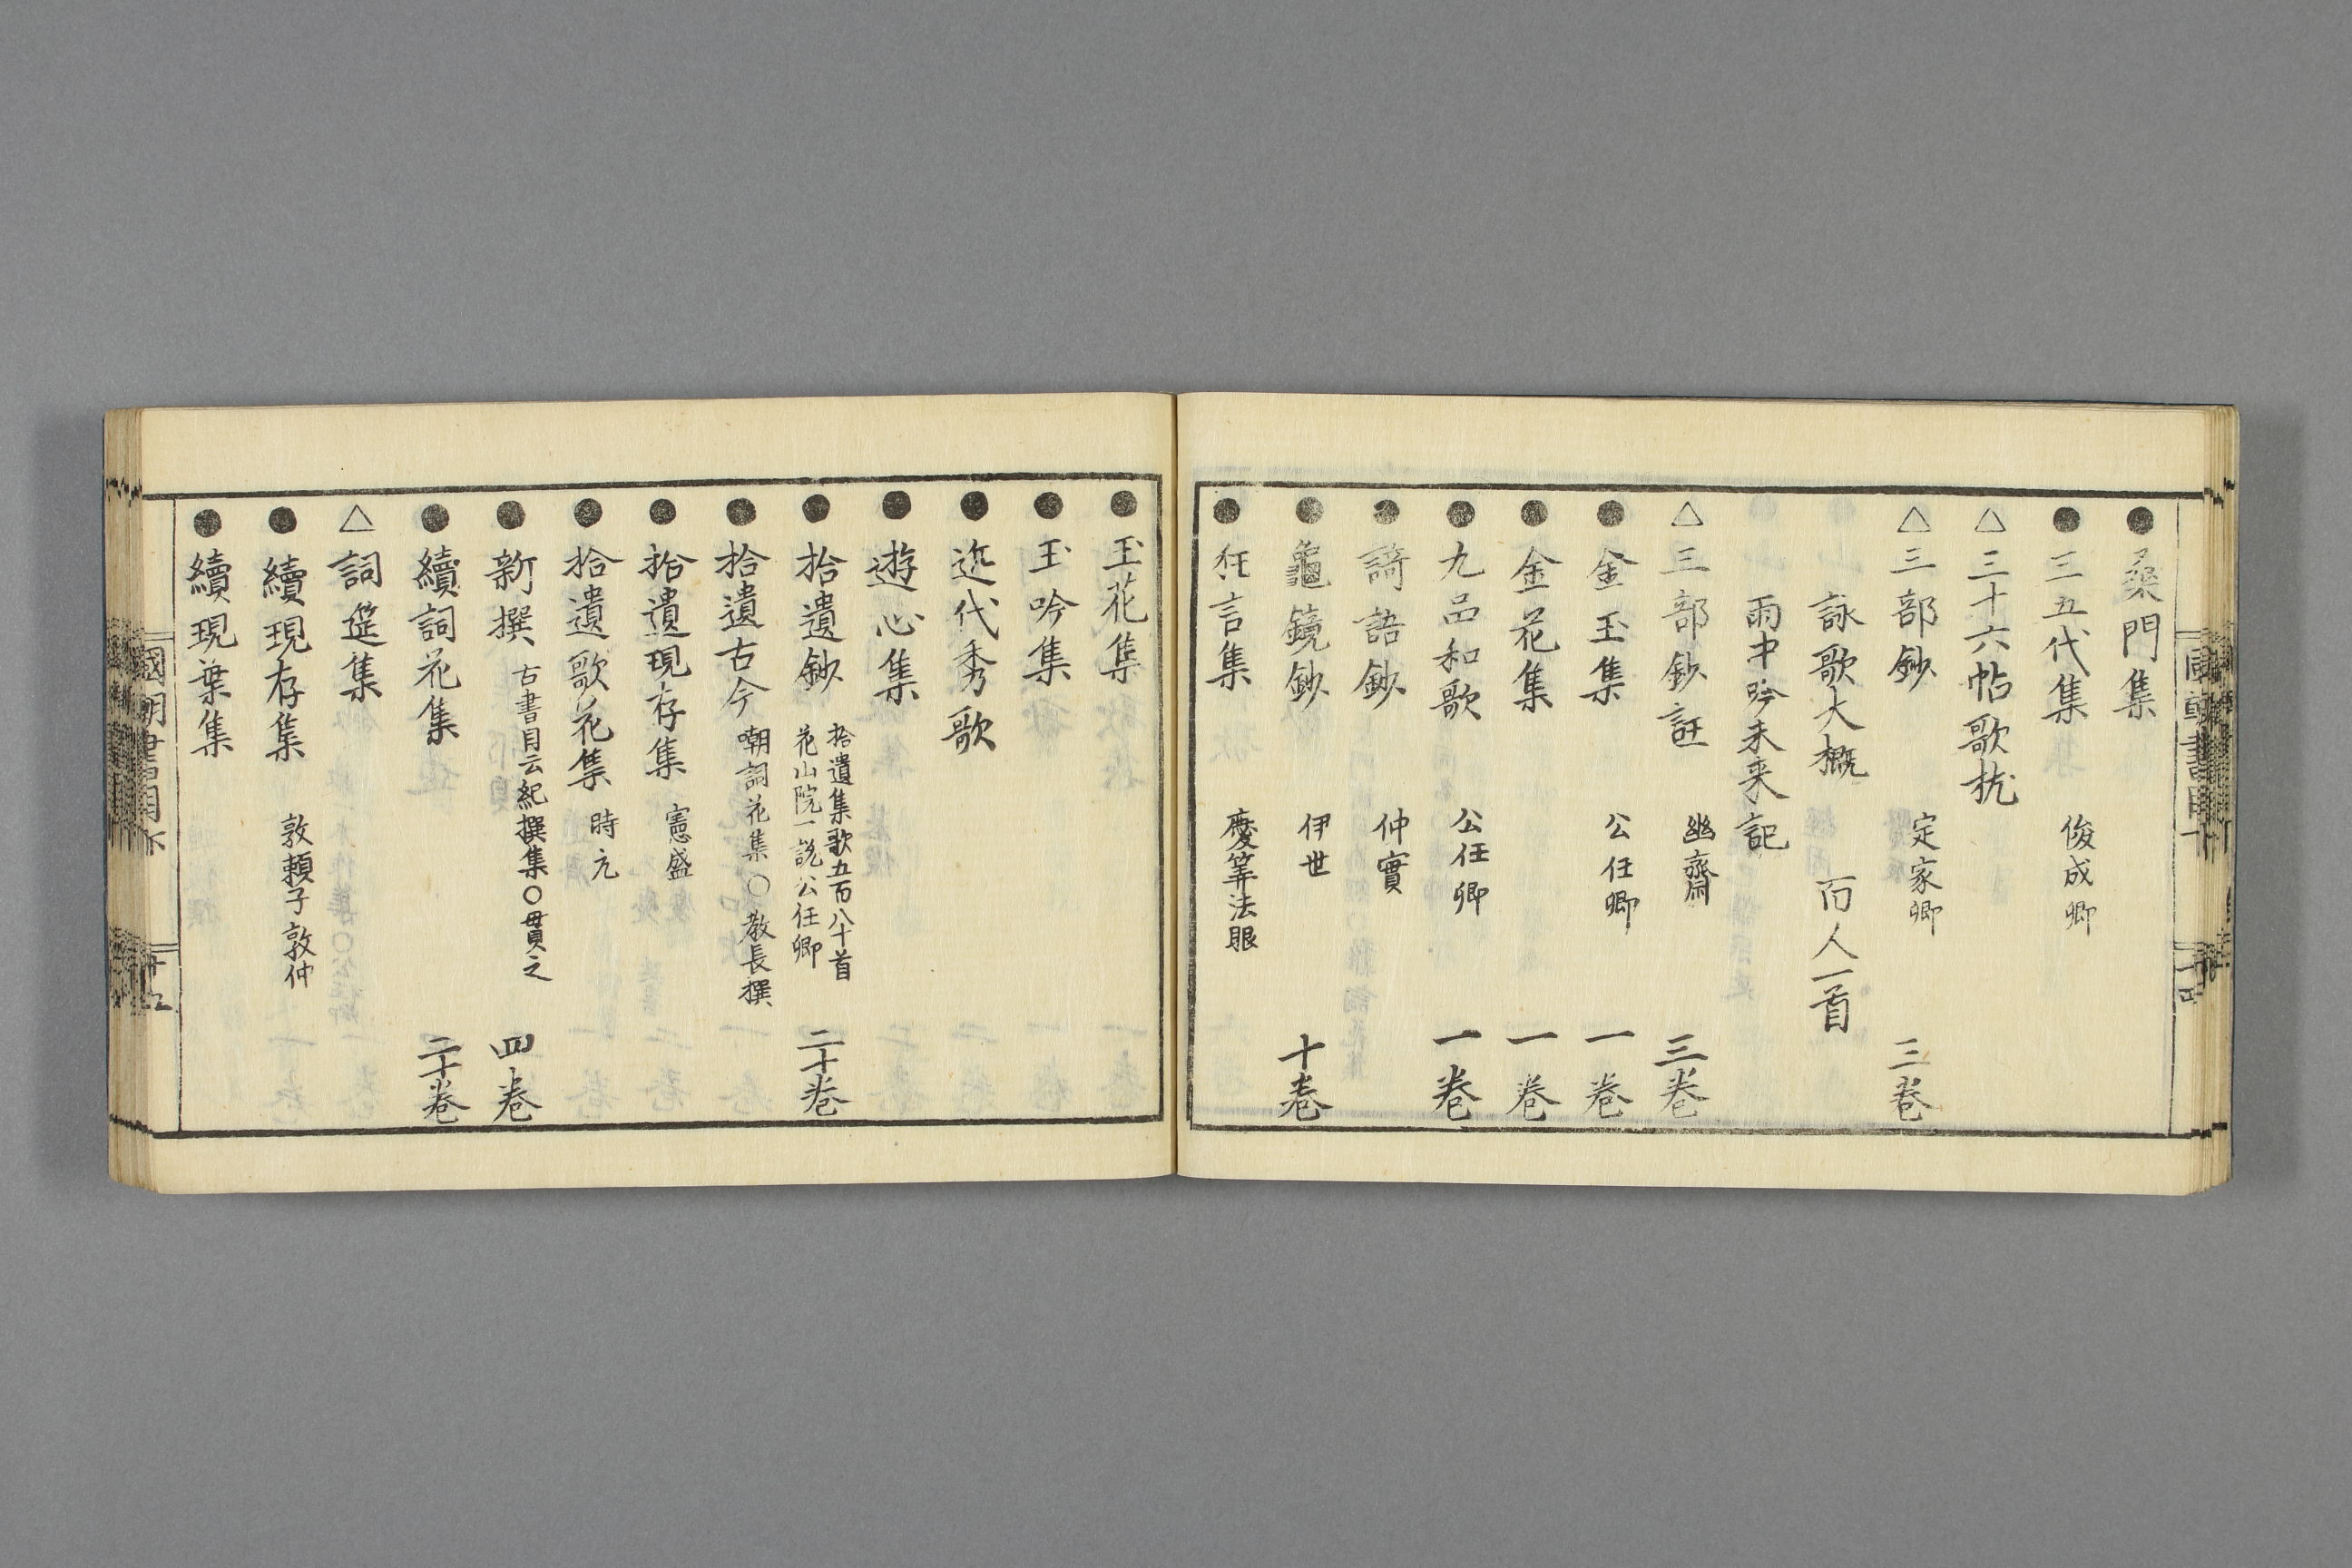 ●桑門集
●三五代集　俊成卿
△三十六帖歌抌
△三部鈔　定家卿　三巻
詠歌大概　百人一首
雨中吟未来記
△三部鈔註　幽齋　三巻
●金玉集　公任卿　一巻
●金花集　一巻
●九品和歌　公任卿　一巻
●綺語鈔　仲實
●龜鏡鈔　伊世　十巻
●狂言集　慶筭法眼
●玉花集
●玉吟集
●近代秀歌
●遊心集
●拾遺鈔　拾遺集歌五百八十首
花山院一説公任卿　二十巻
●拾遺古今　嘲詞花集〇教長撰
●拾遺現存集　憲盛
●拾遺歌花集　時元
●新撰　古書目云紀撰集〇貫之　四巻
●續詞花集　二十巻
△詞莚集
●續現存集　敦頼子敦仲
●續現葉集